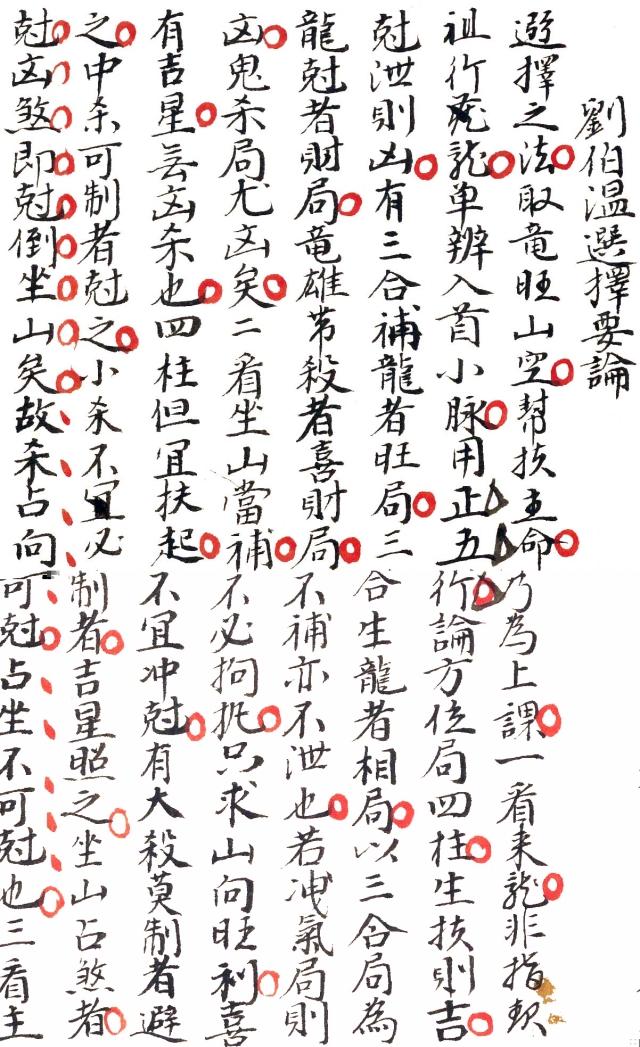 劉伯温選擇要論
遊擇之法取竜旺山空幫扶主命乃為上課一看来龍非指
祖行龍单辨入首小脉用正五行論方位局四柱生扶則吉
尅泄則凶有三合補龍者旺局三合生龍者相局以三合局為
龍尅者財局竜雄带殺者喜財局不補亦不泄也若洩氣局則
凶鬼杀局尤凶矣二看坐山當補不必拘扼只求山向旺利喜
有吉星芸凶杀也四柱但冝扶起不冝冲尅有大殺莫制者避
之中杀可制者尅之小杀不冝必制者吉星照之坐山占煞者
尅凶煞即尅倒坐山矣故杀占向可尅占坐不可尅也三看主